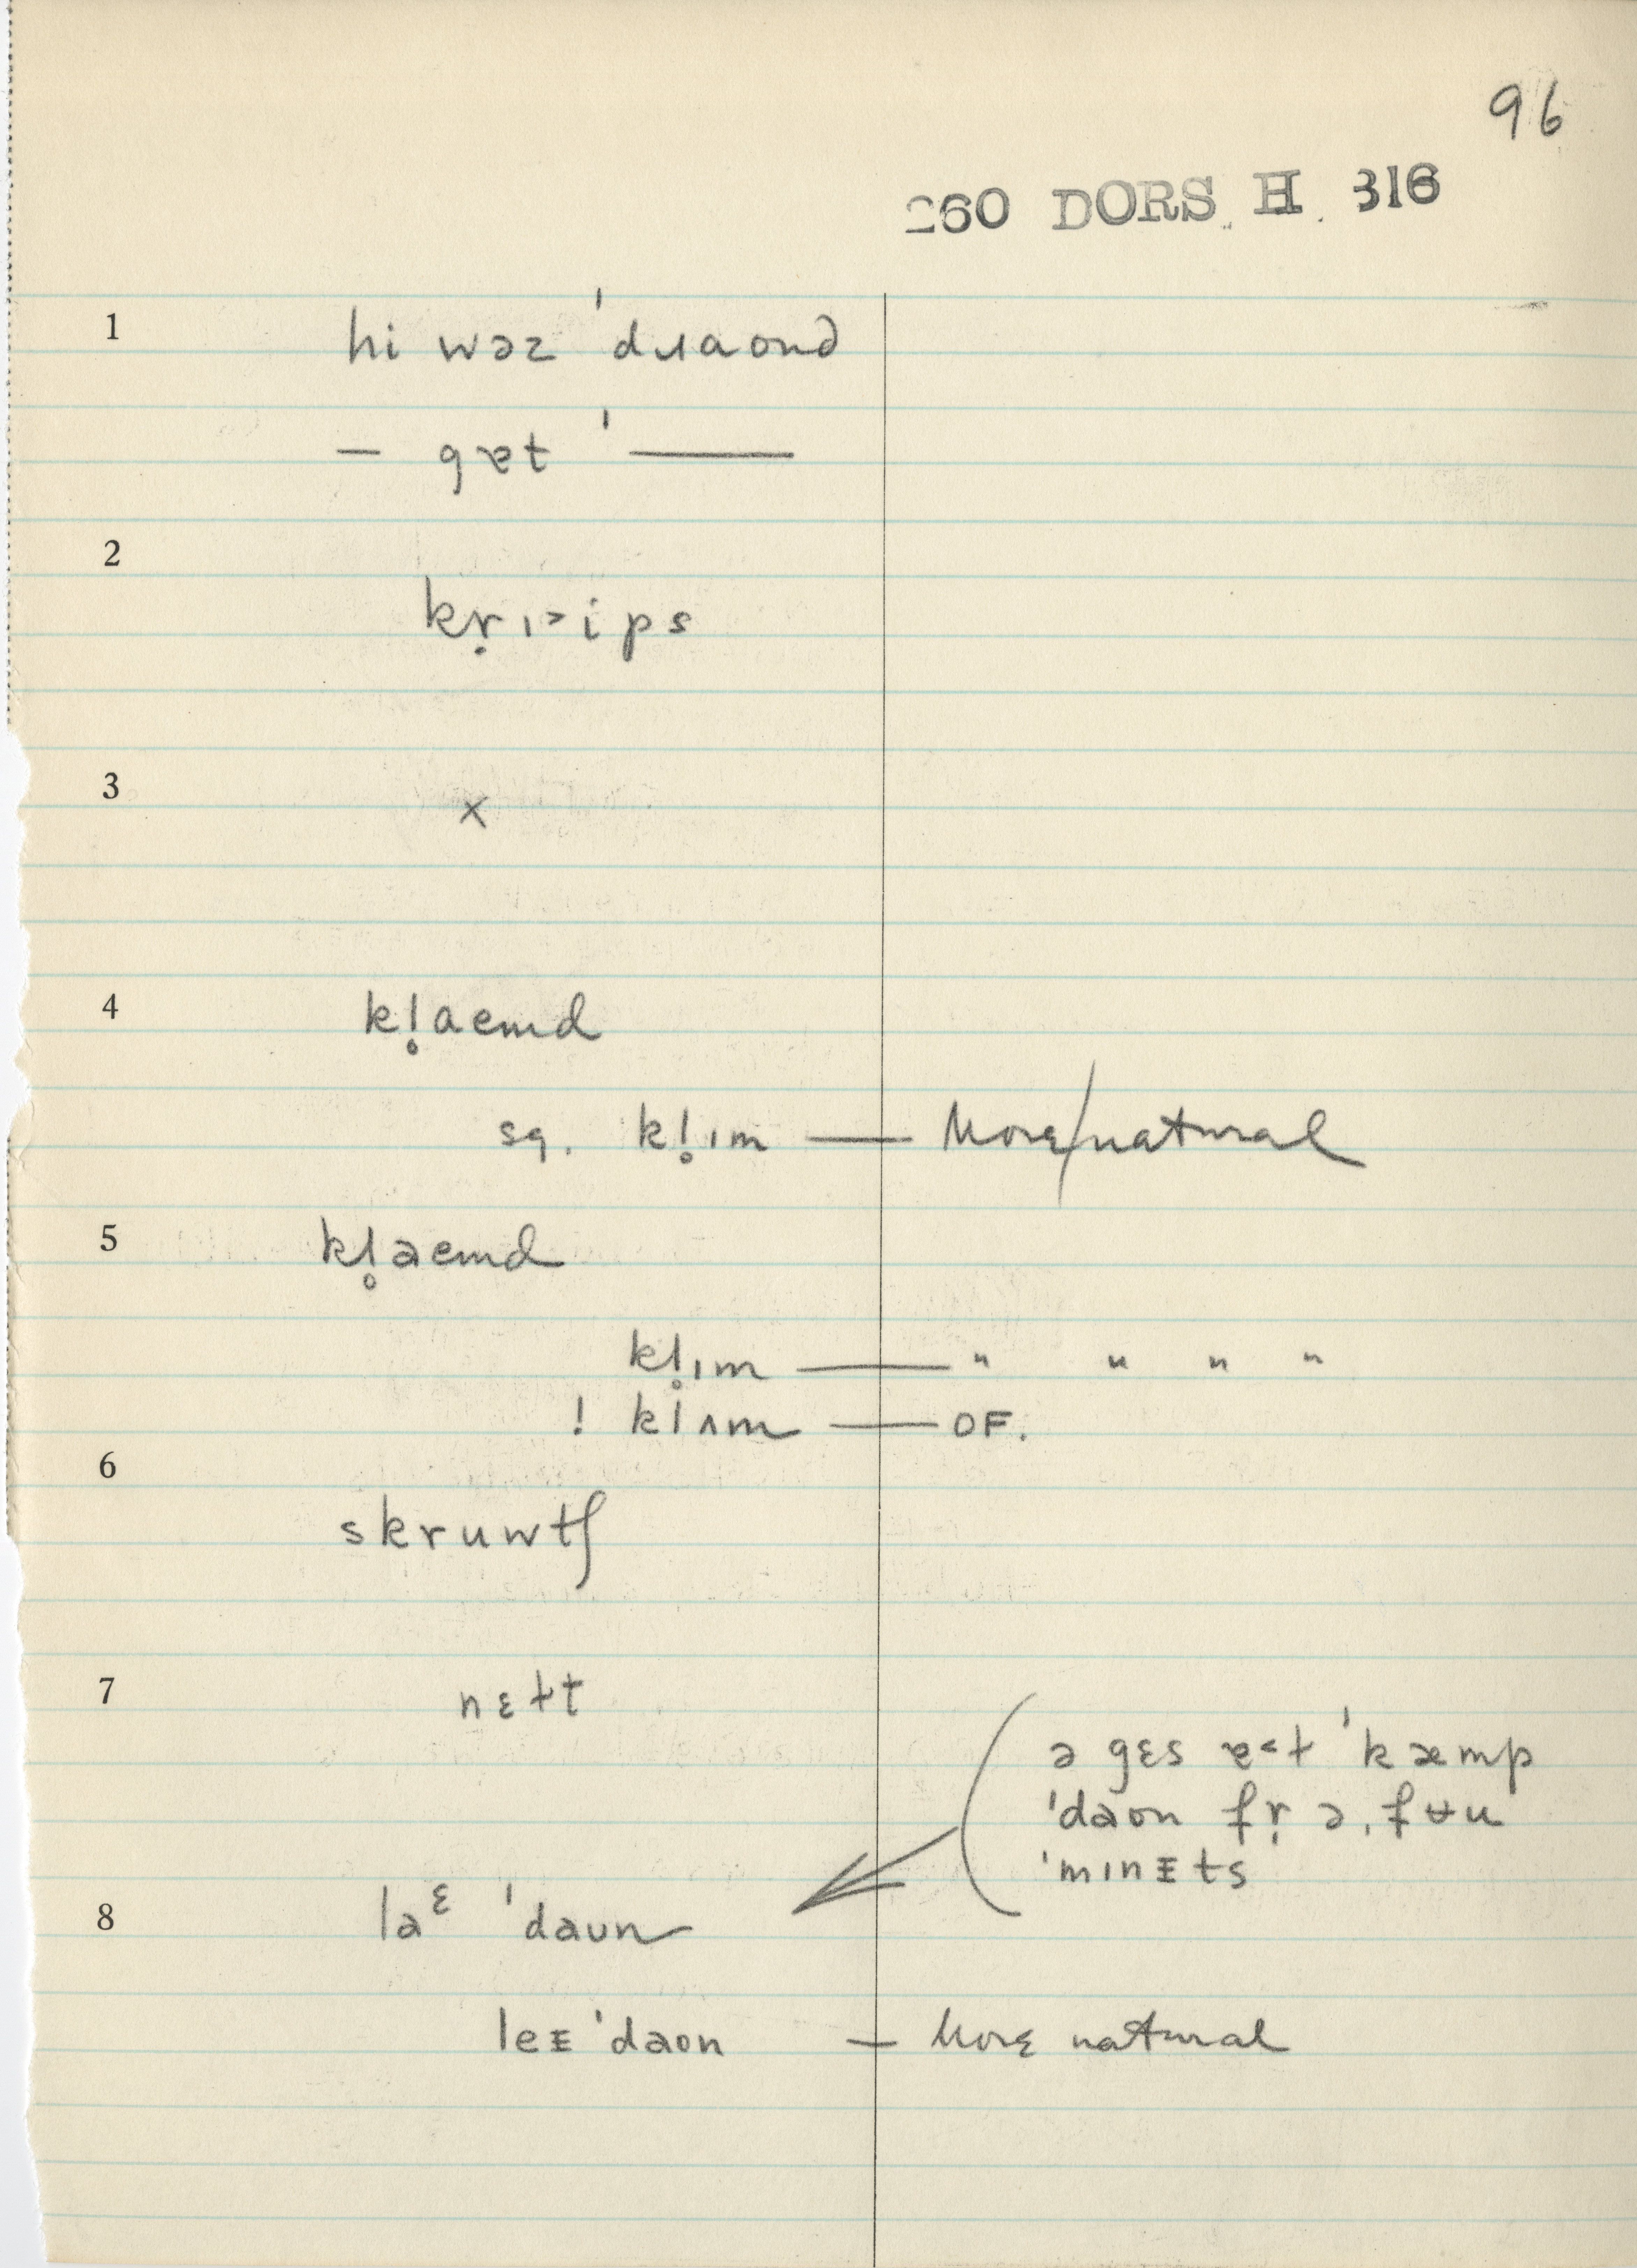 96
260 DORS. H. 316
1 hi wəz ˈdɹaond
— gɐt ˈ———
2 kṛɪ˃ips
3 x
4 kl̥aemd
sq. kl̥ɪm — More/natural
5 kl̥aemd
kl̥ɪm — " " " "
! klʌm — OF.
6 skruwtʃ
7 nɛɫt
ə gɛs ɐ˂t ˈkæmp
ˈdaon fṛ ə ˌfʉu
ˈmɪnᵻts
8 laᵋ ˈdaun
leᵻ ˈdaon — More natural